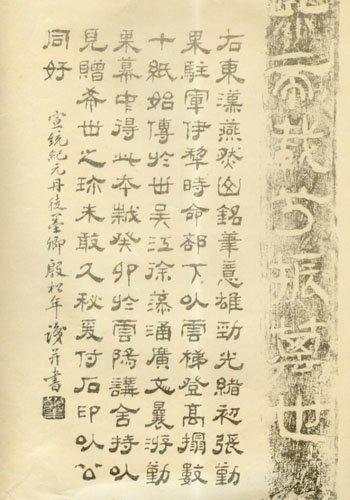 帝載兮振萬世
右東漢燕然山銘筆意雄勁光緒初張勤
果駐軍伊犂時命部下以雲梯登高搨數
十紙始傳於世吳江徐藻涵廣文曩游勤
果幕中得此本越癸卯於雲陽講舍持以
見贈希世之珎未敢久秘爰付石印以公
同好
宣統紀元丹徒墨卿殷松年識并書